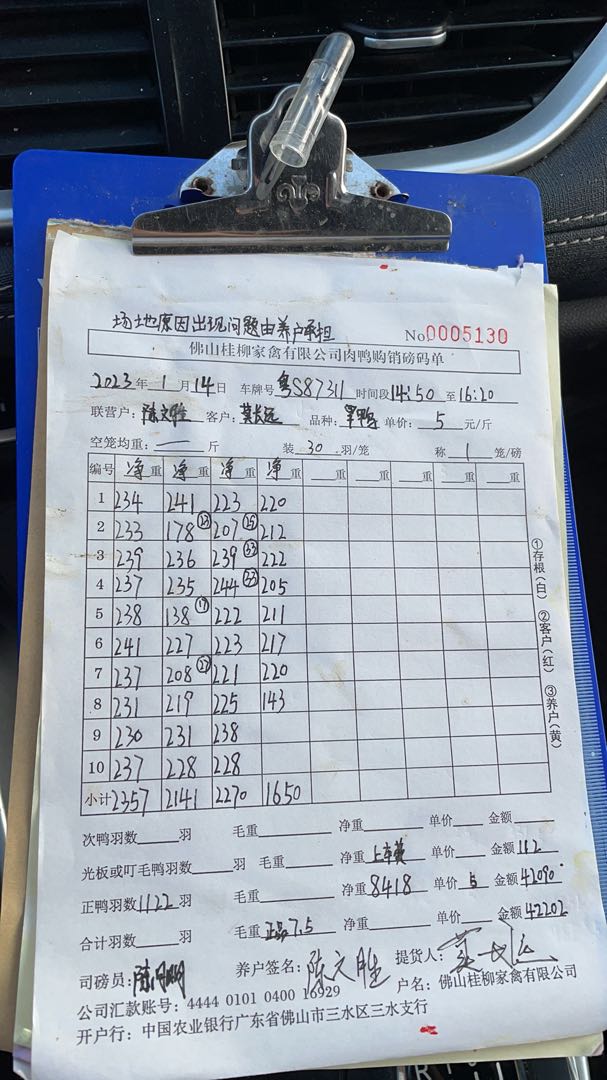 场地原因出现问题由养户承担
No.0005130
佛山桂柳家禽有限公司肉鸭购销磅码单
2023年 1 月 14 日 车牌号 粤S87311 时间段 14:50 至 16:20
联营户: 陈文胜 客户: 莫长远 品种: 单价: 5 元/斤
空笼均重: — 斤 装 30 羽/笼 称 1 笼/磅
编号 净重 净重 净重 净重 重 重 重 重 重
1 234 241 223 220
2 233 178 23 207 25 212
3 239 236 239 33 222
4 237 235 244 33 205
5 238 138 17 222 211
6 241 227 223 217
7 237 208 27 221 220
8 231 219 225 143
9 230 231 238
10 237 228 228
小计 2357 2141 2270 1650
①存根(白) ②客户(红) ③养户(黄)
次鸭羽数 羽 毛重 净重 单价 金额
光板或叮毛鸭羽数 羽 毛重 净重 上车费 单价 金额 112
正鸭羽数 1122 羽 毛重 净重 8418 单价 5 金额 42090
合计羽数 羽 毛重 正品7.5 净重 单价 金额 42202
司磅员: 养户签名: 陈文胜 提货人:
公司汇款账号: 4444 0101 0400 16929 户名: 佛山桂柳家禽有限公司
开户行: 中国农业银行广东省佛山市三水区三水支行